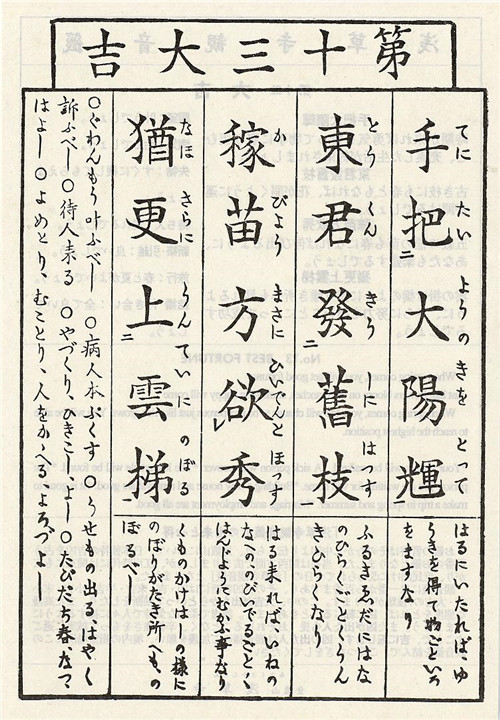 第十三大吉
てに たいようの きをとつて
手把大陽輝
はるにいたれば、ゆ
うきを得、物ごといろ
をますなり
とうくん きうしにはつす
東君發舊枝
ふるきゑだにはな
のひらくごとくうん
きひらくなり
かびよう まさにひいでんとほつす
稼苗方欲秀
はる来れば、いねの
なへののびいでるごとく
はんじようにむかふ事なり
なほさらに うんていにのぼる
猶更上雲梯
くものかけはしの様に
のぼりがたき所へもの
ぼるべし
○ぐわんもう叶ふべし ○病人本ぶくす ○うせもの出る、はやく
訴ふべし ○待人来る ○やづくり、ひきこしよし ○たびだち春になつて
はよし ○よめとり、むことり、人をかゝへるよろづよし